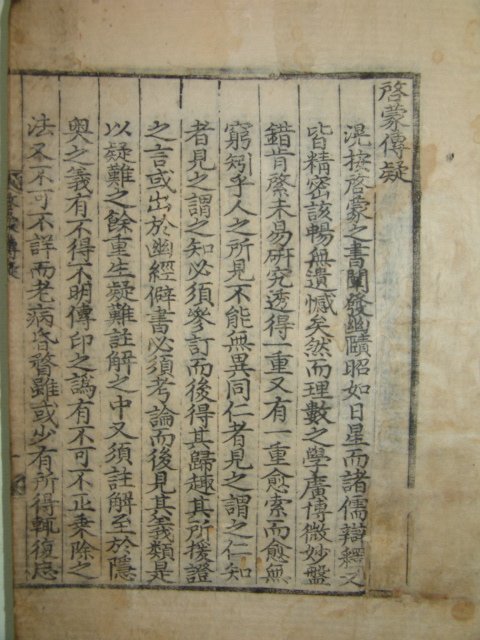 啓蒙傳疑
滉按啓蒙之書闡發幽賾昭如日星而諸儒辯釋又
皆精密該暢無遺憾矣然而理數之學廣博微妙盤
錯肯綮未易硏究透得一重又有一重愈索而愈無
窮矧乎人之所見不能無異同仁者見之謂之仁知
者見之謂之知必須參訂而後得其歸趣其所援證
之言或出於幽經僻書必須考論而後見其義類是
以疑難之餘重生疑難註解之中又須註解至於隱
奧之義有不得不明傳印之譌有不可不正乘除之
法又不可不詳而老病昏瞀雖或少有所得輒復忘